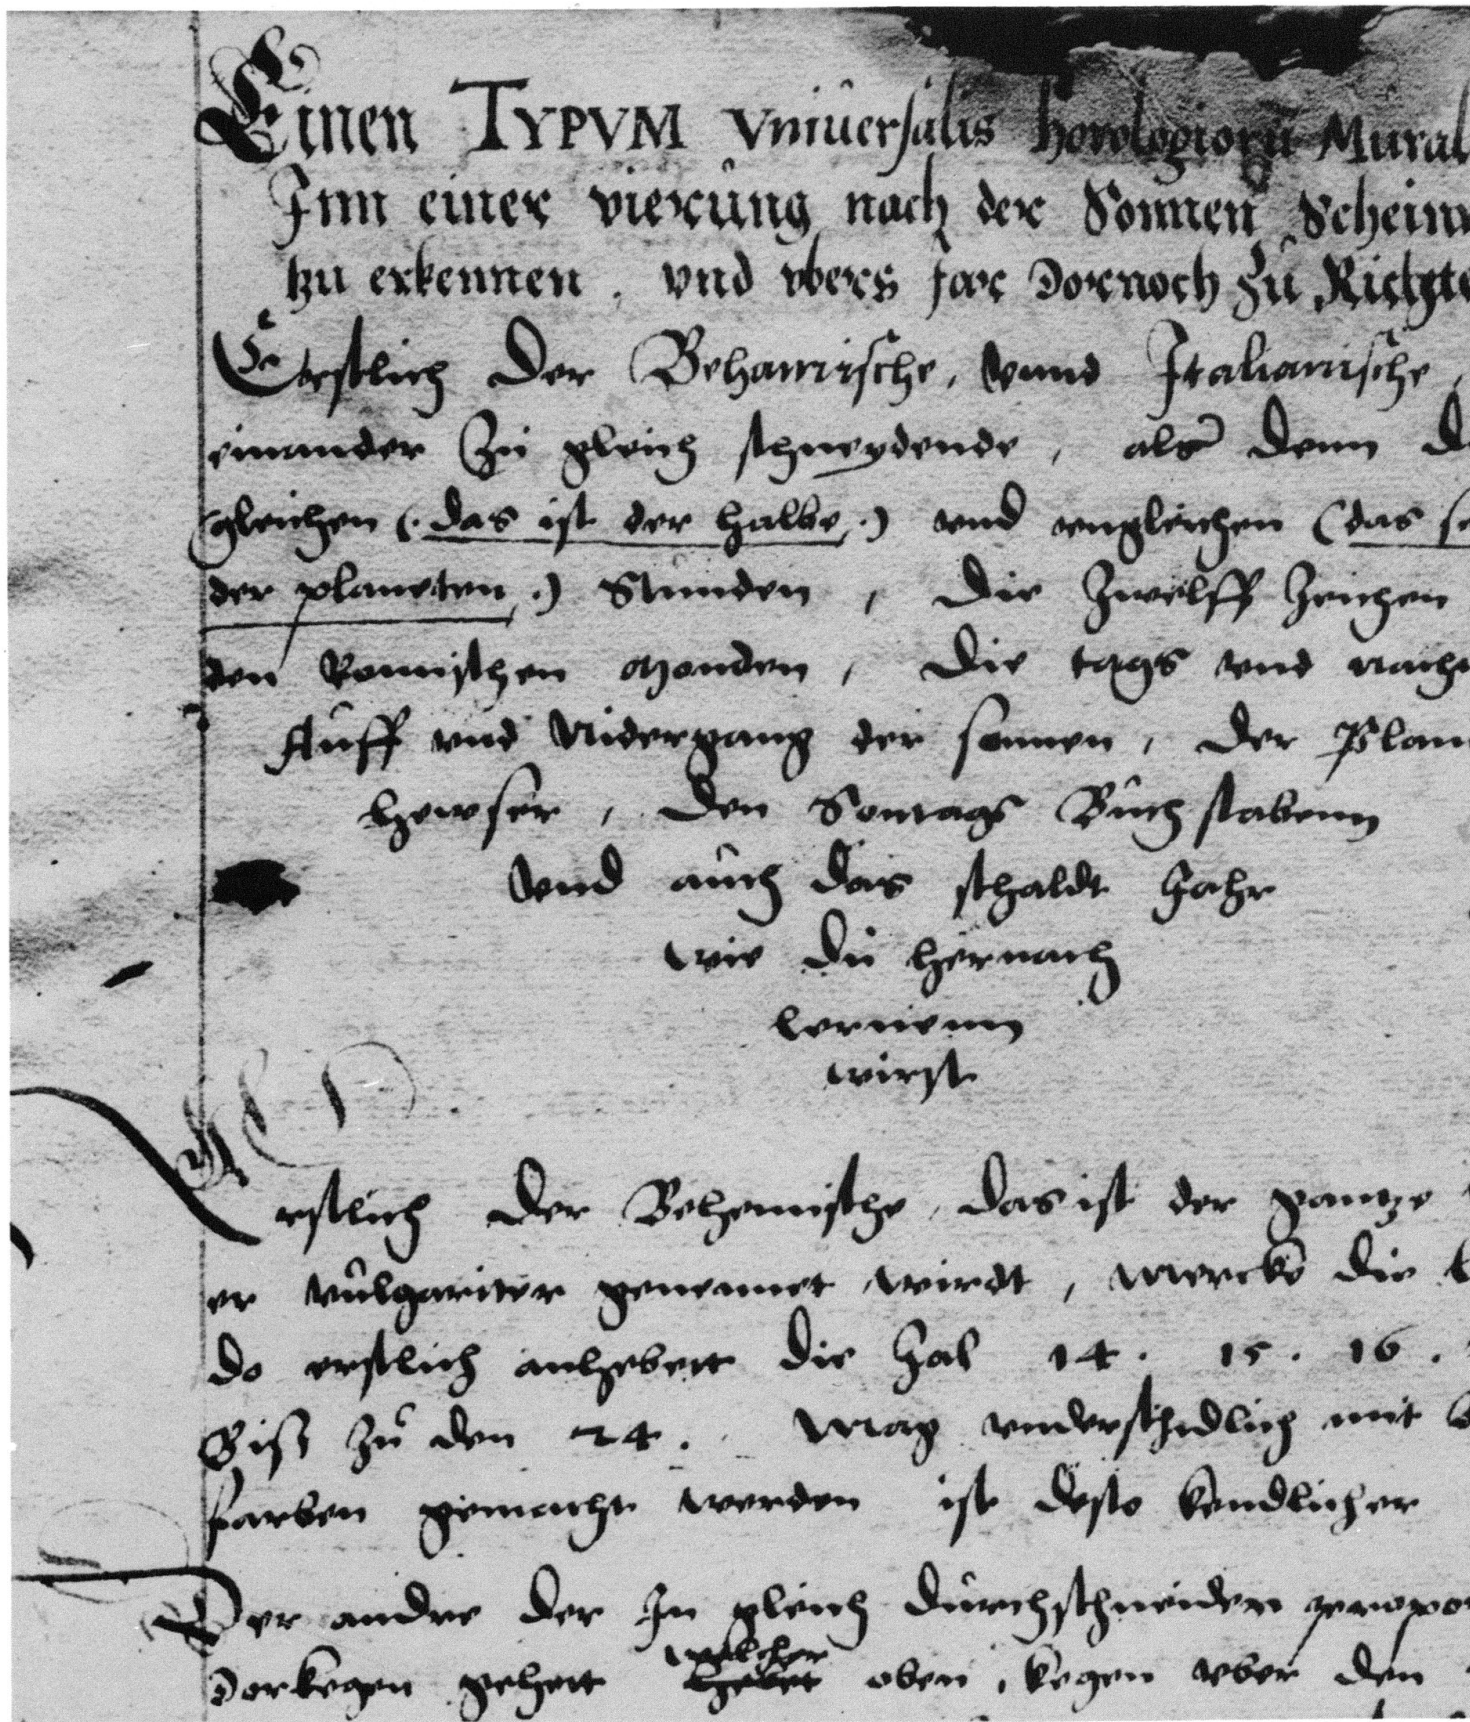 Einen TYPVM Vniuersalis horologiorū Mural
Inn einer vierung nach der Sonnen Schein
tzu erkennen, vnd vbers jar dornoch zu Richte
Erstlich der Behamische, vnnd Italianische,
einander zu gleich schneydende, als denn d
gleichen (das ist der halbe.) vnd vngleichen (das se
der planeten.) Stunden, die zwelff zeichen
den Romischen Monden, die tags vnd nacht
Auff vnd Nidergang der sonnen, der Plan
hewser, den Sontags Buchstabenn
vnd auch das schaldt Jahr
wie du hernach
lernenn
wirst
Erstlich der Behemische, das ist der gantze
er vulgariter genennet wirdt, mercke die
do erstlich anhebett die zal 14. 15. 16.
Biß zu den 24. mag vnderschidlich mit
farben gemacht werden ist desto kendlicher
Der andre der In gleich durchschneiden
welcher
dorkegen gehett hebet oben, kegen vber den